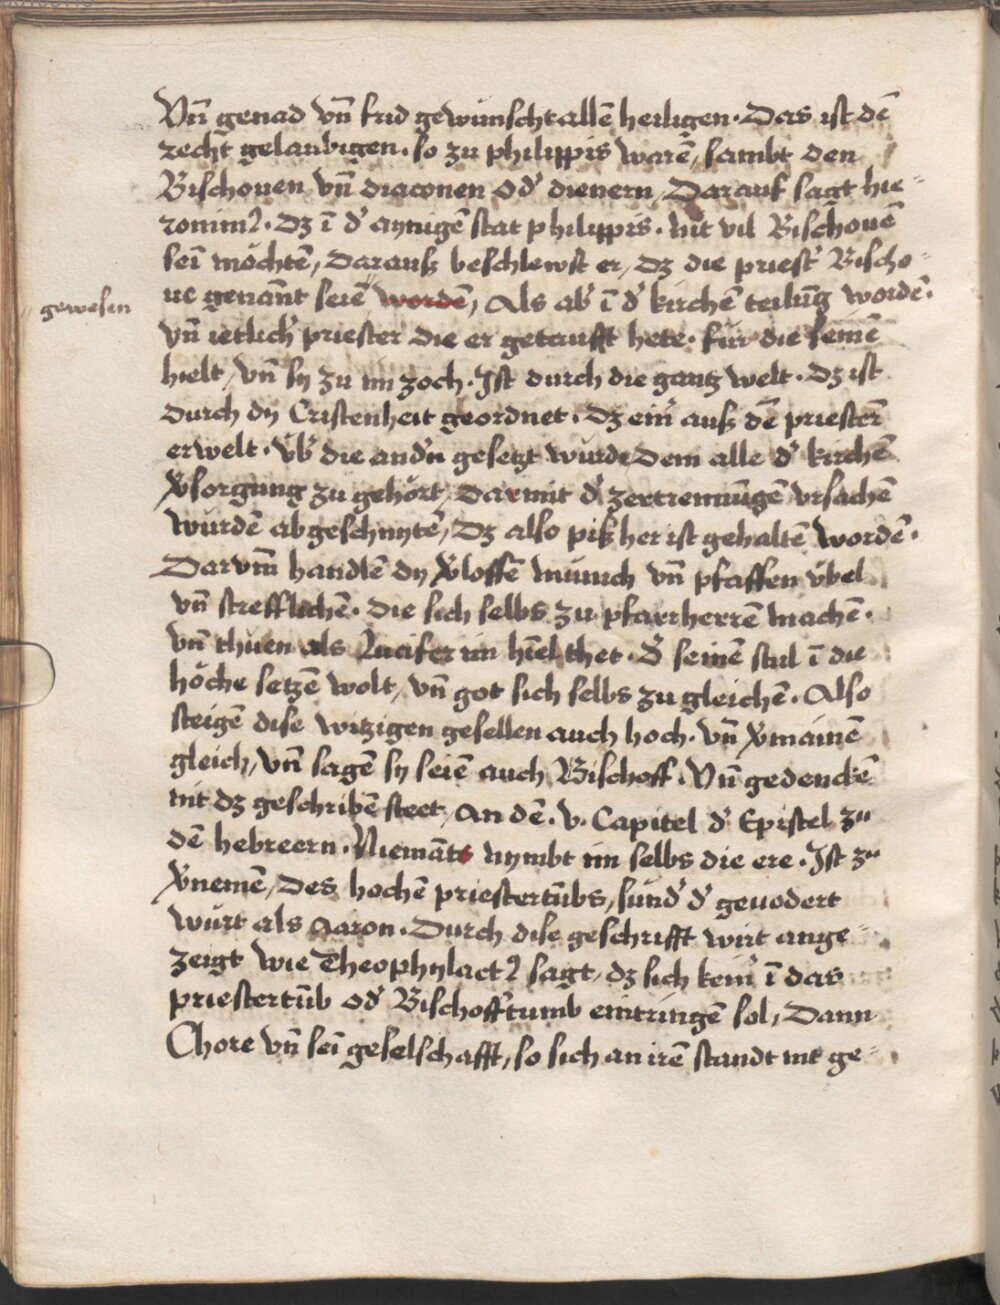 Vnd̄ genad vn̄ frid gewünscht allē heiligen. Das ist dē
recht gelaubigen. so zu philippis warē, sambt den
Bischouen vn̄ diaconen od᷈ dienern, Darauf sagt hie⸗
ronim9. Dz ī d᷈ aynigē stat philippis. nit vil Bischouē
sei᷈n möchtē, Darauß beschlewst er, dz die priest᷈ Bischo⸗
ue genan̄t seiē wordē, Als ab᷈ ī d᷈ kirchē teilūg wordē.
gewesen
vn̄ ietlich᷈ priester die er getaufft hete. für die seinē
hielt, vn̄ sy zu im zoch. Ist durch die gantz welt. Dz ist
durch dy Cristenheit geordnet. Dz ein᷈ auß dē priesterē
erwelt. üb᷈ die and᷈n gesetzt wurde Dem alle d᷈ kirchē
v᷈sorgung zu gehört, Darmit d᷈ zertrennūgē vrsachē
würdē abgeschnytē, Dz also piß her ist gehaltē wordē.
Darum̄ handlē dy v᷈loffē münich vn̄ pfaffen übel
vn̄ strefflichē. die sich selbs zu pfarrherrē machē.
vn̄ thuen als Lucifer im hīel thet. D᷈ seinē stul ī die
höche setzē wolt, vn̄ got sich selbs zu gleichē. Also
steigē dise witzigen gesellen auch hoch. vn̄ v᷈mainē
gleich, vn̄ sagē sy seiē auch Bischoff. Vn̄ gedenckē
nit dz geschribē steet, An dē. v. Capitel d᷈ Epistel zu
dē hebreern. Niemāts nymbt im selbs die ere. Ist zu
v᷈nemē, Des hochē priestertūbs, sund᷈ d᷈ geuodert
würt als Aaron. Durch dise geschrifft wirt ange⸗
zeigt wie Theophylact9 sagt, dz sich kein᷈ ī das
priestertūb od᷈ Bischofftumb eintringē sol, Dann
Chore vn̄ sei᷈n geselschafft, so sich an irē standt nit ge⸗